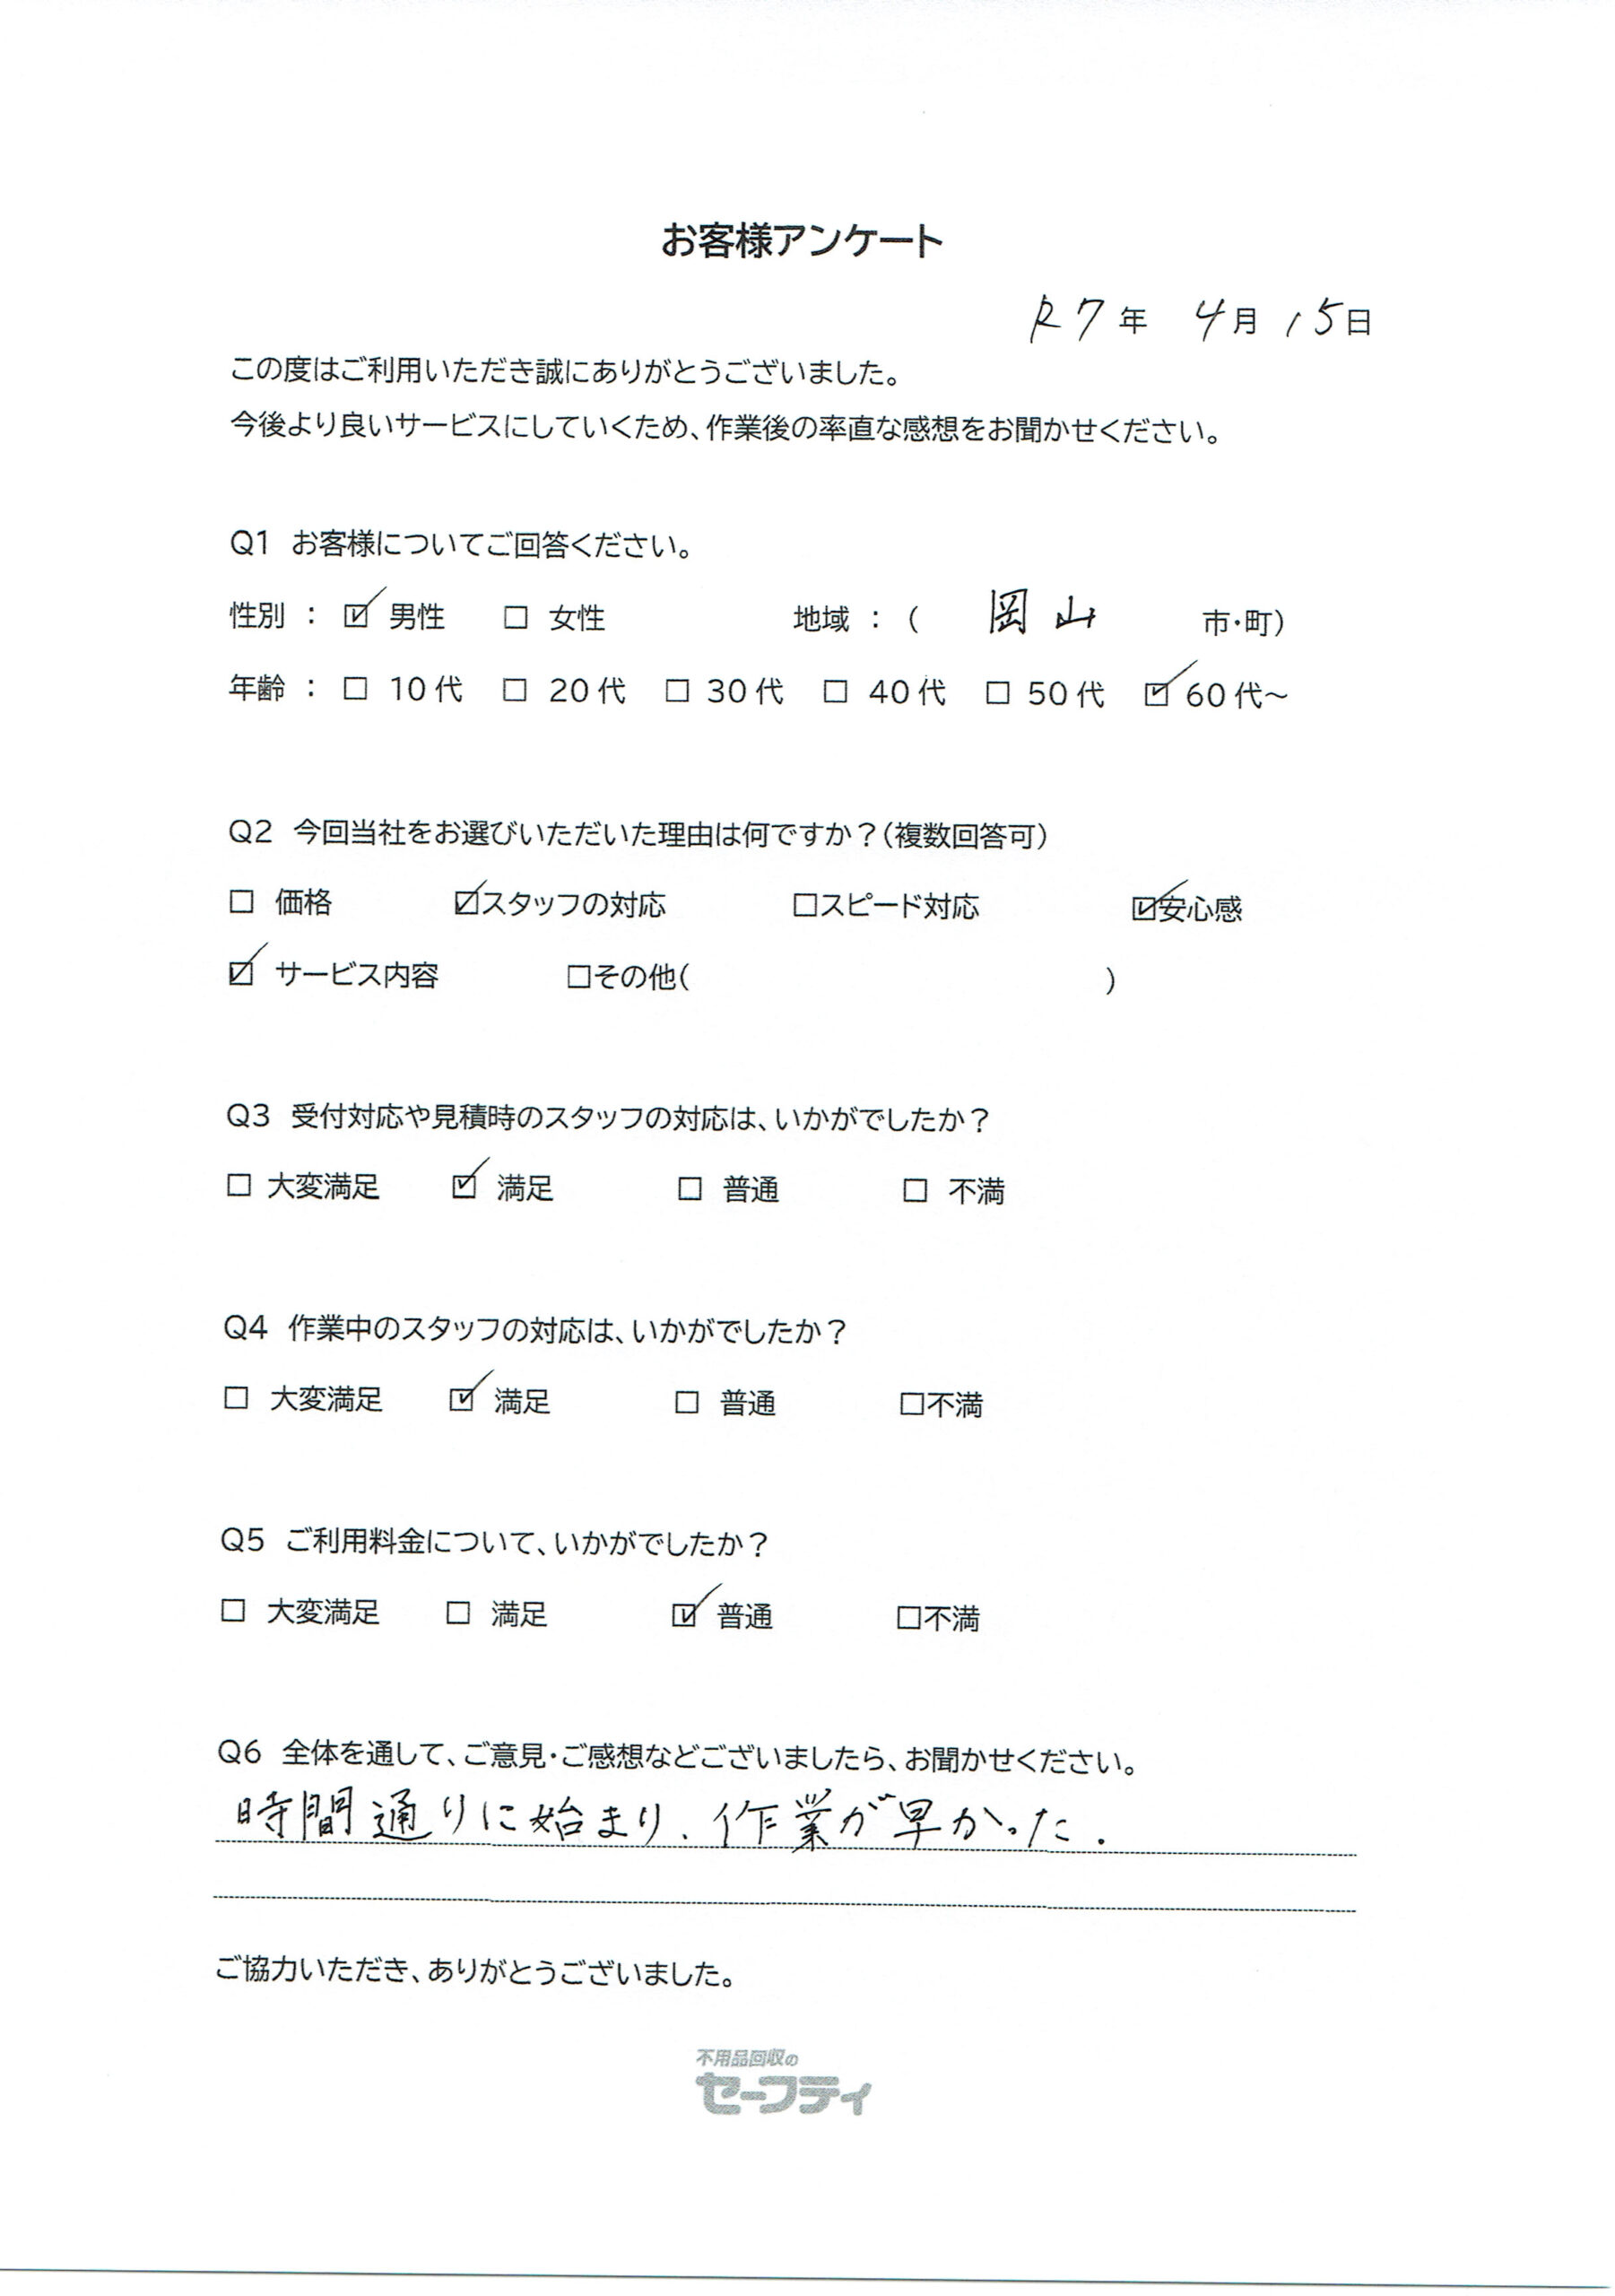 お客様アンケート
R7年 4月15日
この度はご利用いただき誠にありがとうございました。
今後より良いサービスにしていくため、作業後の率直な感想をお聞かせください。
Q1 お客様についてご回答ください。
性別 : ☑ 男性 □ 女性 地域 : ( 岡山 市・町)
年齢 : □ 10代 □ 20代 □ 30代 □ 40代 □ 50代 ☑ 60代~
Q2 今回当社をお選びいただいた理由は何ですか?(複数回答可)
□ 価格 ☑スタッフの対応 □スピード対応 ☑安心感
☑ サービス内容 □その他( )
Q3 受付対応や見積時のスタッフの対応は、いかがでしたか?
□ 大変満足 ☑ 満足 □ 普通 □ 不満
Q4 作業中のスタッフの対応は、いかがでしたか?
□ 大変満足 ☑ 満足 □ 普通 □不満
Q5 ご利用料金について、いかがでしたか?
□ 大変満足 □ 満足 ☑ 普通 □不満
Q6 全体を通して、ご意見・ご感想などございましたら、お聞かせください。
時間通りに始まり、作業が早かった.
ご協力いただき、ありがとうございました。
不用品回収の
セーフティ